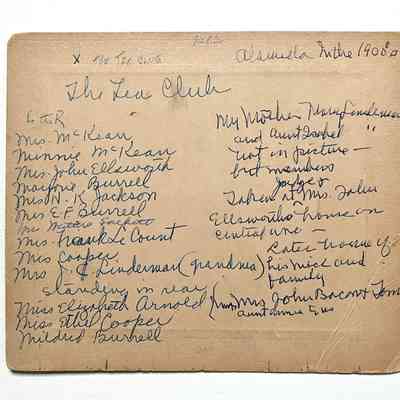 X The Tea Club
Alameda In the 1900s
The Tea Club
L to R
Mrs. McKean
Minnie McKean
Mrs. John Ellsworth
Marjorie Burrell
Mrs. N. K. Jackson
Mrs E F Burrell
Mrs
Mrs. Frank Le Count
Mrs Cooper
Mrs J. E. Linderman (grandma)
standing in rear
Miss Elizabeth Arnold
Miss Ethel Cooper
Mildred Burrell
My Mother Linderman
and Aunt Isabel "
not in picture -
but members
Taken at Mrs. John
Ellsworth's house on
Central ave -
Later home of
and
family
Mrs John Bacon